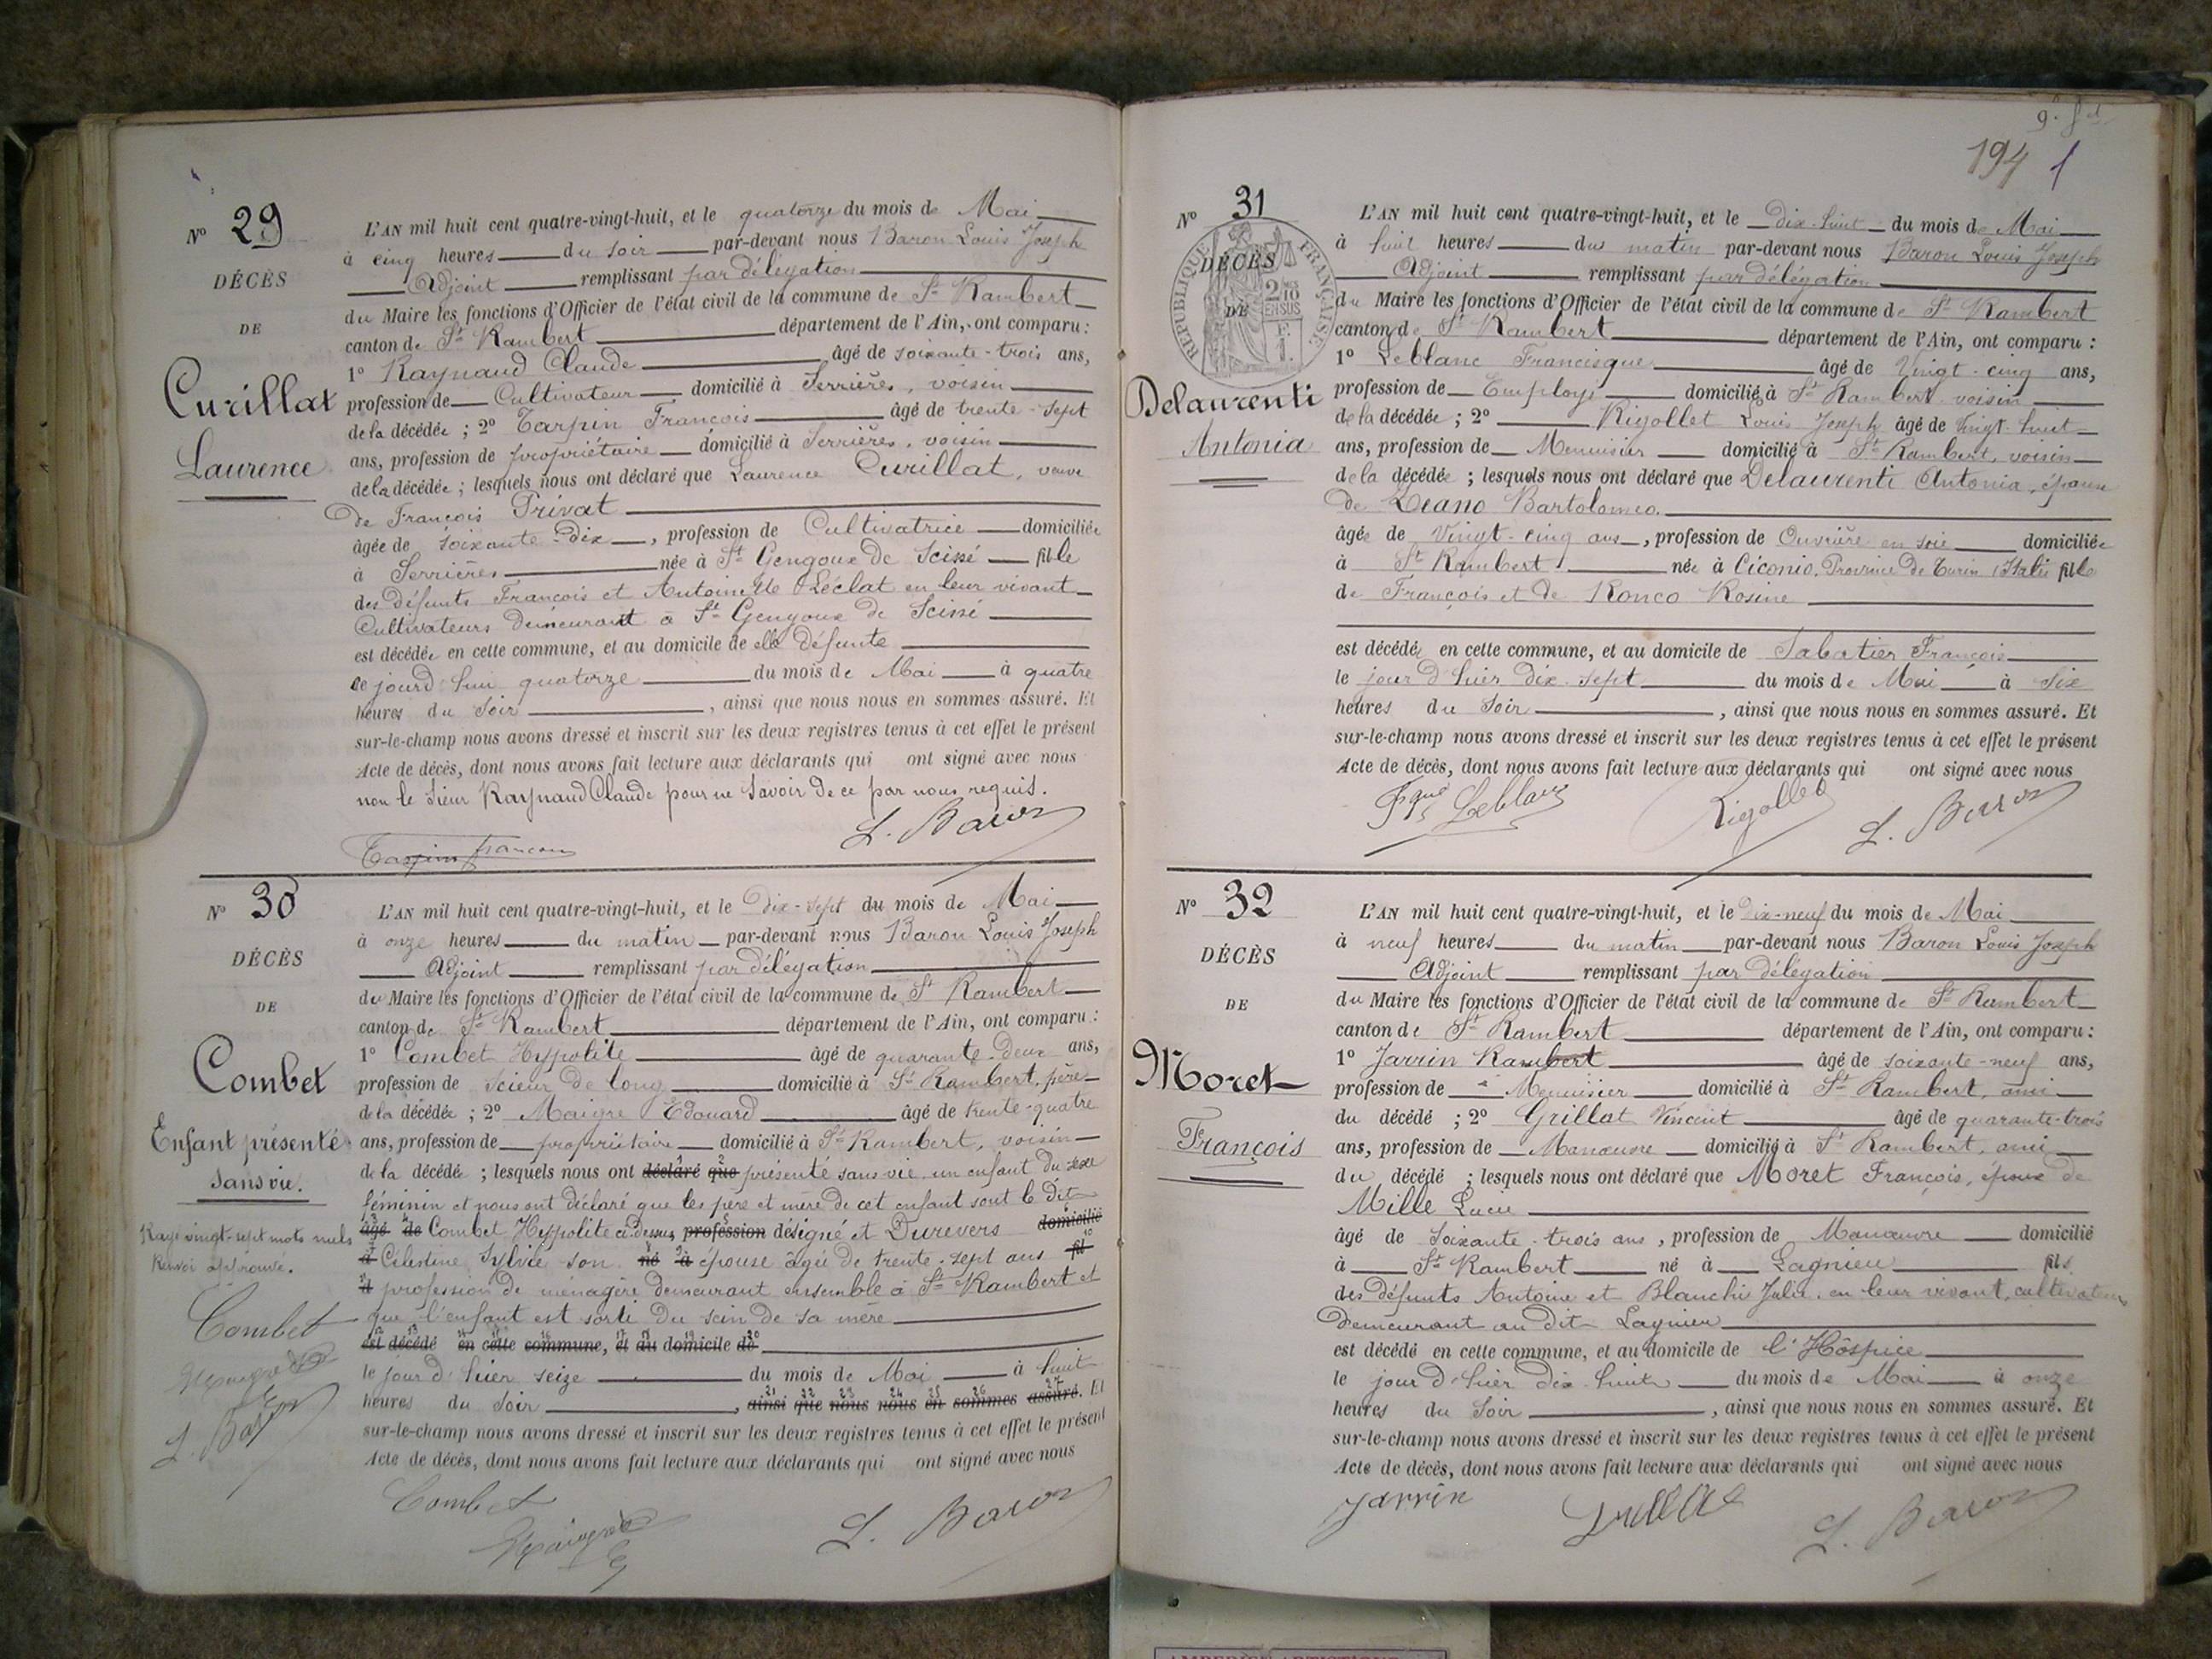 N° 29
DÉCÈS
DE
Curillat
Laurence
L'AN mil huit cent quatre-vingt-huit, et le quatorze du mois de Mai
à cinq heures du soir par-devant nous Baron Louis Joseph
Adjoint remplissant par délégation
du Maire les fonctions d'Officier de l'état civil de la commune de St Rambert
canton de St Rambert département de l'Ain, ont comparu :
1° Raynaud Claude âgé de soixante-trois ans,
profession de Cultivateur domicilié à Serrières, voisin
de la décédée ; 2° Tarpin François âgé de trente-sept
ans, profession de propriétaire domicilié à Serrières, voisin
de la décédée ; lesquels nous ont déclaré que Laurence Curillat, veuve
de François Privat
âgée de soixante-dix, profession de Cultivatrice domiciliée
à Serrières née à St Gengoux de Scissé fille
des défunts François et Antoinette Léclat en leur vivant
Cultivateurs demeurant à St Gengoux de Scissé
est décédée en cette commune, et au domicile de elle défunte
ce jourd'hui quatorze du mois de Mai à quatre
heures du soir, ainsi que nous nous en sommes assuré. Et
sur-le-champ nous avons dressé et inscrit sur les deux registres tenus à cet effet le présent
Acte de décès, dont nous avons fait lecture aux déclarants qui ont signé avec nous
non le sieur Raynaud Claude pour ne savoir de ce par nous requis.
Tarpin francois L. Baron
N° 30
DÉCÈS
DE
Combet
Enfant présenté
sans vie.
Rayé vingt-sept mots nuls
Renvoi approuvé.
Combet
L. Baron
L'AN mil huit cent quatre-vingt-huit, et le dix-sept du mois de Mai
à onze heures du matin par-devant nous Baron Louis Joseph
Adjoint remplissant par délégation
du Maire les fonctions d'Officier de l'état civil de la commune de St Rambert
canton de St Rambert département de l'Ain, ont comparu :
1° Combet Hyppolite âgé de quarante-deux ans,
profession de Scieur de long domicilié à St Rambert, père
de la décédée ; 2° Maigre Edouard âgé de trente-quatre
ans, profession de propriétaire domicilié à St Rambert, voisin
de la décédée ; lesquels nous ont déclaré que présenté sans vie un enfant du sexe
féminin et nous ont déclaré que les père et mère de cet enfant sont le dit
âgé de Combet Hyppolite ci-dessus profession désigné et Durevers domicilié
à Célestine Sylvie son né à épouse âgée de trente-sept ans fil
d profession de ménagère demeurant ensemble à St Rambert et
que l'enfant est sorti du sein de sa mère
est décédé en cette commune, et au domicile de
le jour d'hier seize du mois de Mai à huit
heures du soir, ainsi que nous nous en sommes assuré. Et
sur-le-champ nous avons dressé et inscrit sur les deux registres tenus à cet effet le présent
Acte de décès, dont nous avons fait lecture aux déclarants qui ont signé avec nous
Combet
L. Baron
194
N° 31
RÉPUBLIQUE FRANÇAISE
DÉCÈS
DE
Delaurenti
Antonia
L'AN mil huit cent quatre-vingt-huit, et le dix-huit du mois de Mai
à huit heures du matin par-devant nous Baron Louis Joseph
Adjoint remplissant par délégation
du Maire les fonctions d'Officier de l'état civil de la commune de St Rambert
canton de St Rambert département de l'Ain, ont comparu :
1° Leblanc Francisque âgé de Vingt-cinq ans,
profession de Employé domicilié à St Rambert voisin
de la décédée ; 2° Rigollet Louis Joseph âgé de Vingt-huit
ans, profession de Menuisier domicilié à St Rambert, voisin
de la décédée ; lesquels nous ont déclaré que Delaurenti Antonia, épouse
de Leano Bartolomeo.
âgée de Vingt-cinq ans, profession de Ouvrière en soie domiciliée
à St Rambert née à Ciconio, Province de Turin (Italie fille
de François et de Ronco Rosine
est décédée en cette commune, et au domicile de Sabatier François
le jour d'hier dix-sept du mois de Mai à Six
heures du Soir, ainsi que nous nous en sommes assuré. Et
sur-le-champ nous avons dressé et inscrit sur les deux registres tenus à cet effet le présent
Acte de décès, dont nous avons fait lecture aux déclarants qui ont signé avec nous
Fque Leblanc Rigollet L. Baron
N° 32
DÉCÈS
DE
Moret
François
L'AN mil huit cent quatre-vingt-huit, et le dix-neuf du mois de Mai
à neuf heures du matin par-devant nous Baron Louis Joseph
Adjoint remplissant par délégation
du Maire les fonctions d'Officier de l'état civil de la commune de St Rambert
canton de St Rambert département de l'Ain, ont comparu :
1° Jarrin Rambert âgé de soixante-neuf ans,
profession de Menuisier domicilié à St Rambert, ami
du décédé ; 2° Grillat Vincent âgé de quarante-trois
ans, profession de Manœuvre domicilié à St Rambert, ami
du décédé ; lesquels nous ont déclaré que Moret François, époux de
Mille Lucie
âgé de soixante-trois ans, profession de Manœuvre domicilié
à St Rambert né à Lagnieu fils
des défunts Antoine et Blanchis Julie, en leur vivant, cultivateurs
demeurant au dit Lagnieu
est décédé en cette commune, et au domicile de l'Hôspice
le jour d'hier dix-huit du mois de Mai à onze
heures du Soir, ainsi que nous nous en sommes assuré. Et
sur-le-champ nous avons dressé et inscrit sur les deux registres tenus à cet effet le présent
Acte de décès, dont nous avons fait lecture aux déclarants qui ont signé avec nous
Jarrin Grillat L. Baron